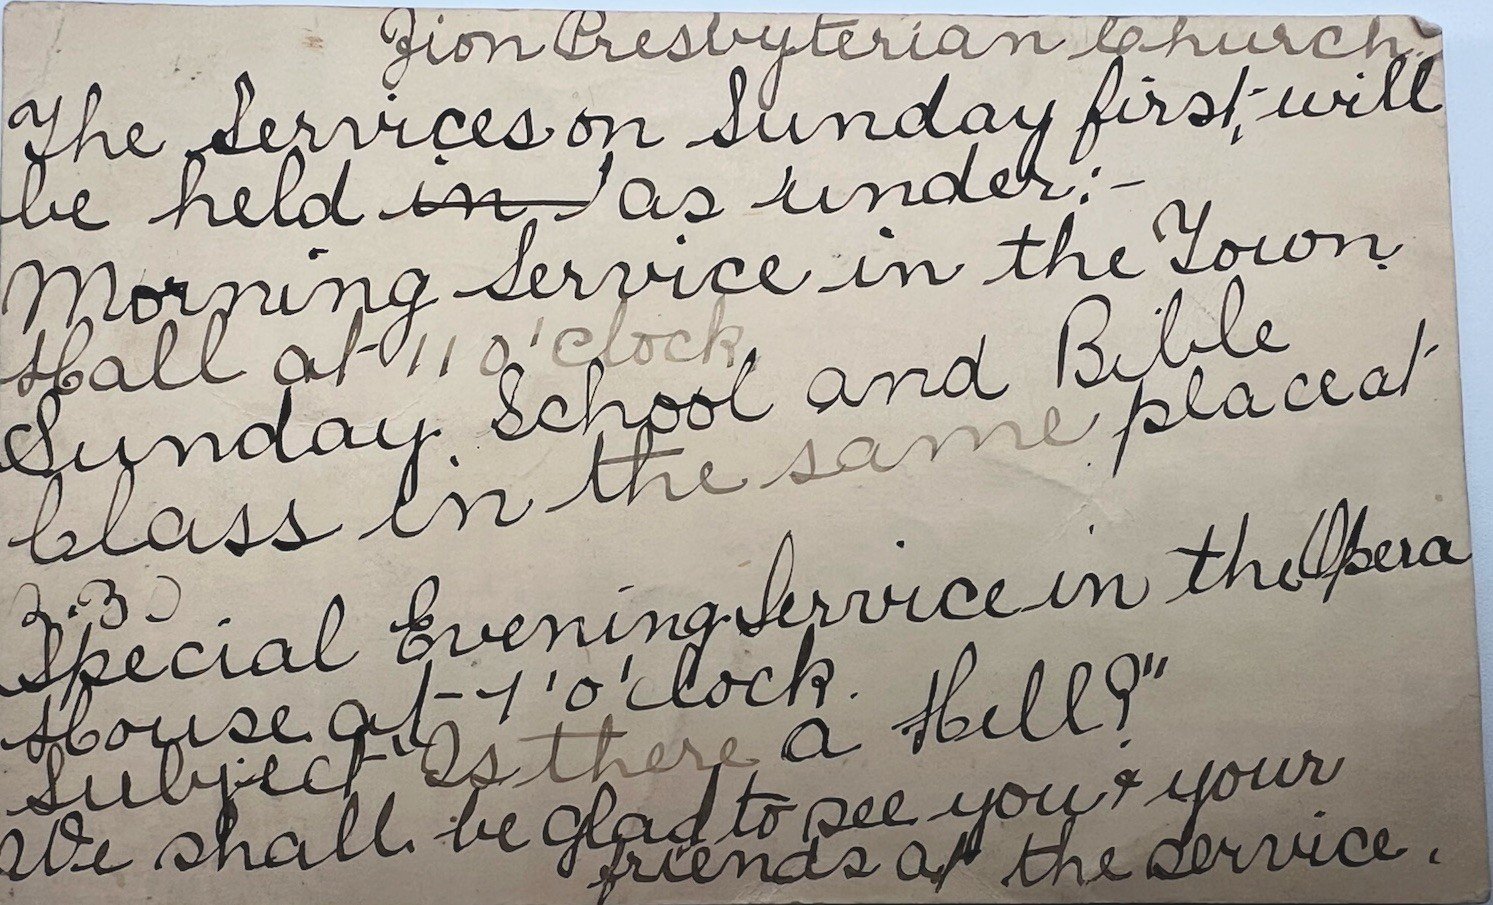 Zion Presbyterian Church.
The Services on Sunday first, will
be held in as under:-
Morning Service in the Town
Hall at 11 o'clock
Sunday School and Bible
Class in the same place at
3.
Special Evening Service in the Opera
House at 7 'o'clock.
Subject "Is there a Hell?"
We shall be glad to see you & your
friends at the service.